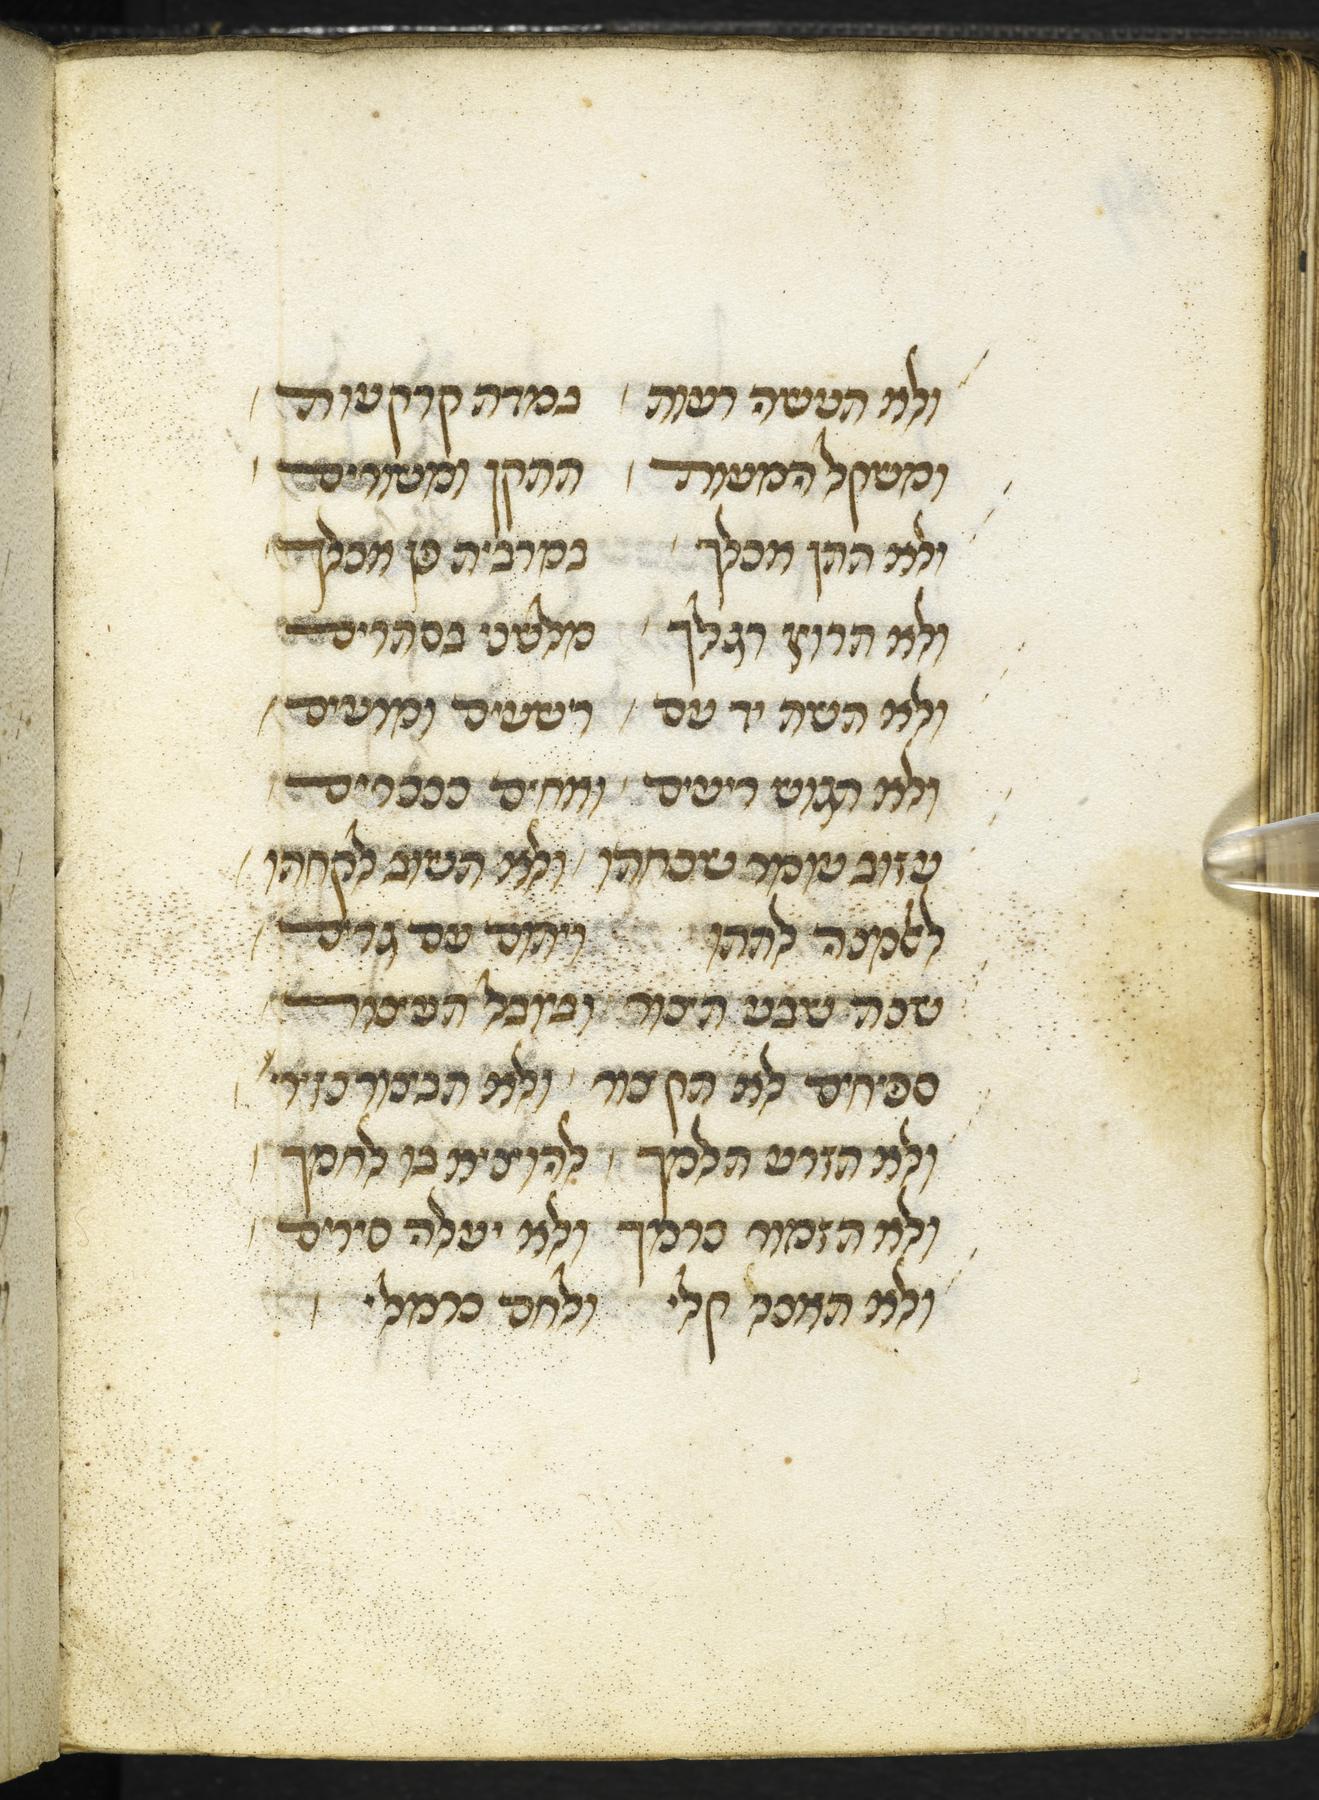 ולא תעשה רעות במדה קרקעות
ומשקל המעות התקן ומשורים
ולא תתן אכלך במרבית פן אכלך
ולא תרוץ רגלך מלשני בסתרים
ולא תשת יד עם רשעים ומועים
ולא תגוש ריעים ואחים ככפרים
עזוב עומר שכחתו ולא תשוב לקחתו
לאלמנה לתתו ויתום עם גרים
שנה שבע תיצור וביובל תעיצור
ספיחים לא תקצור ולא תבצור נזירי
ולא תזרע תלמך להוציא בו לחמך
ולא תזמור כרמך ולא יעלה סירים
ולא תאכל קלי ולחם כרמלי